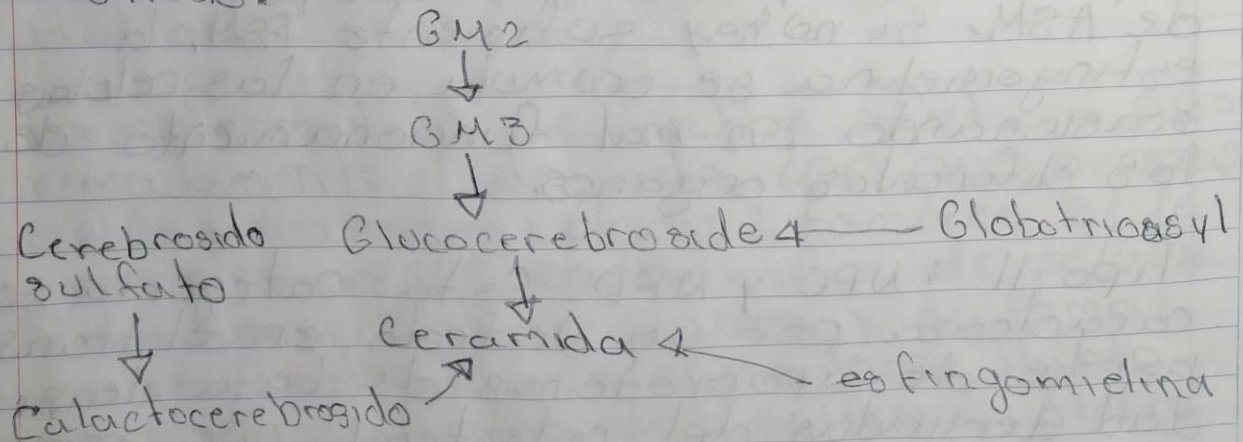 GM2
GM3
Cerebrosido Glucocerebroside Globotrioasyl
sulfato
Ceramida
esfingomielina
Galactocerebrosido